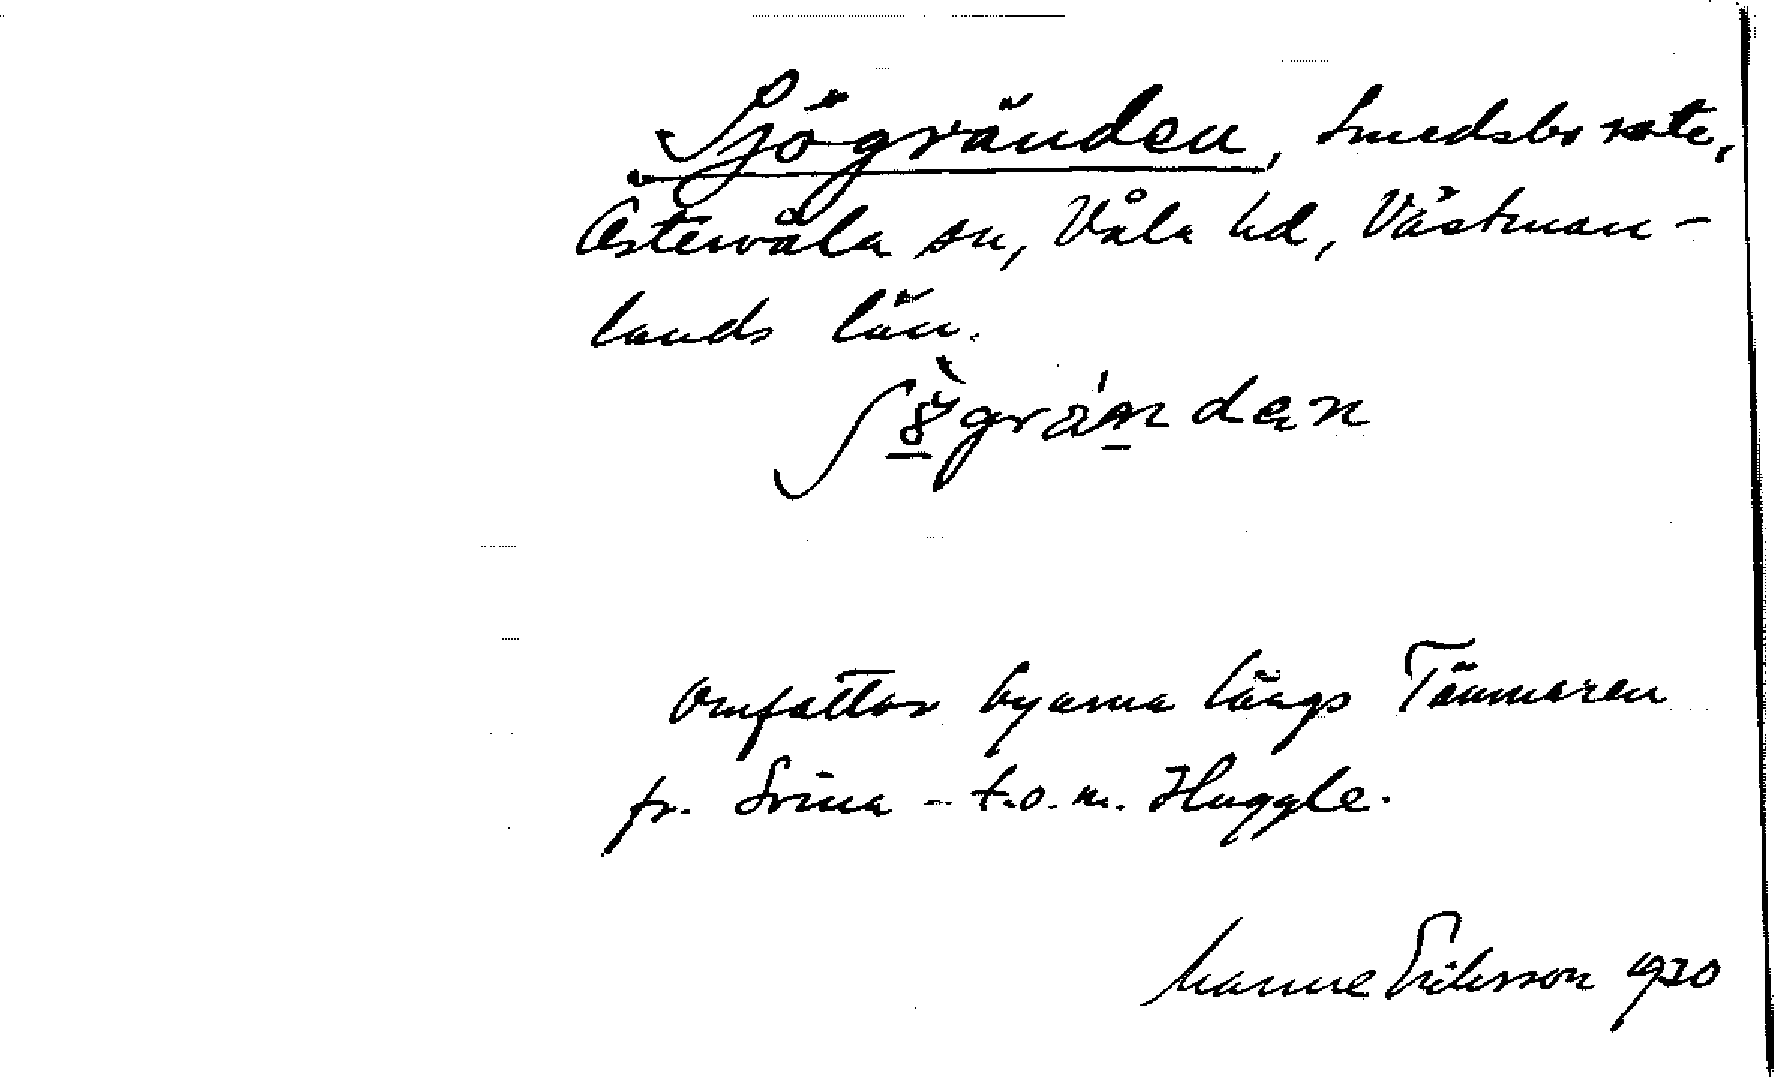 Sjögränden, Smedsbo rote,
Östervåla sn, Våla hd, Västman-
lands län.
grän den
Omfattar byarna längs Tämnaren
fr. Svina - t.o.m. Huggle.
Manne Eriksson 1930